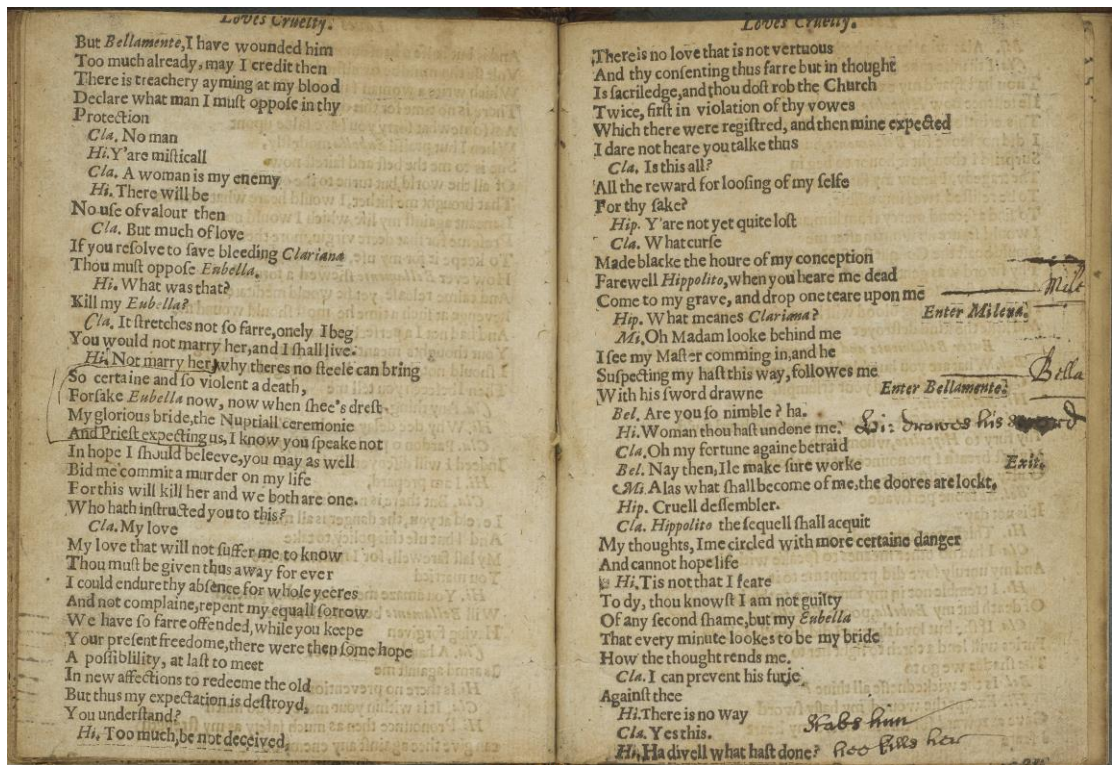 Loves Cruelty.
But Bellamente, I have wounded him
Too much already, may I credit then
There is treachery ayming at my blood
Declare what man I must oppose in thy
Protection
Cla. No man
Hi. Y'are misticall
Cla. A woman is my enemy
Hi. There will be
No use of valour then
Cla. But much of love
If you resolve to save bleeding Clariana
Thou must oppose Eubella.
Hi. What was that?
Kill my Eubella?
Cla. It stretches not so farre, onely I beg
You would not marry her, and I shall live.
Hi. Not marry her, why theres no steele can bring
So certaine and so violent a death,
Forsake Eubella now, now when shee's drest
My glorious bride, the Nuptiall ceremonie
And Priest expecting us, I know you speake not
In hope I should beleeve, you may as well
Bid me commit a murder on my life
For this will kill her and we both are one.
Who hath instructed you to this?
Cla. My love
My love that will not suffer me to know
Thou must be given thus away for ever
I could endure thy absence for whole yeeres
And not complaine, repent my equall sorrow
We have so farre offended, while you keepe
Your present freedome, there were then some hope
A possiblility, at last to meet
In new affections to redeeme the old
But thus my expectation is destroyd,
You understand?
Hi. Too much, be not deceived,
Loves Cruelty.
There is no love that is not vertuous
And thy consenting thus farre but in thought
Is sacriledge, and thou dost rob the Church
Twice, first in violation of thy vowes
Which there were registred, and then mine expected
I dare not heare you talke thus
Cla. Is this all?
All the reward for loosing of my selfe
For thy sake?
Hip. Y'are not yet quite lost
Cla. What curse
Made blacke the houre of my conception
Farewell Hippolito, when you heare me dead
Come to my grave, and drop one teare upon me
Mile
Hip. What meanes Clariana? Enter Milena.
Mi. Oh Madam looke behind me
I see my Master comming in, and he
Suspecting my hast this way, followes me
Bella
With his sword drawne Enter Bellamente.
Bel. Are you so nimble? ha.
Hi. Woman thou hast undone me. Hi: drawes his sword
Cla. Oh my fortune againe betraid
Bel. Nay then, Ile make sure worke Exit.
Mi. Alas what shall become of me, the doores are lockt.
Hip. Cruell dessembler.
Cla. Hippolito the sequell shall acquit
My thoughts, Ime circled with more certaine danger
And cannot hope life
Hi. Tis not that I feare
To dy, thou knowst I am not guilty
Of any second shame, but my Eubella
That every minute lookes to be my bride
How the thought rends me.
Cla. I can prevent his furie
Against thee
Hi. There is no way
Cla. Yes this. Stabs him
Hi. Ha divell what hast done? hee kills her